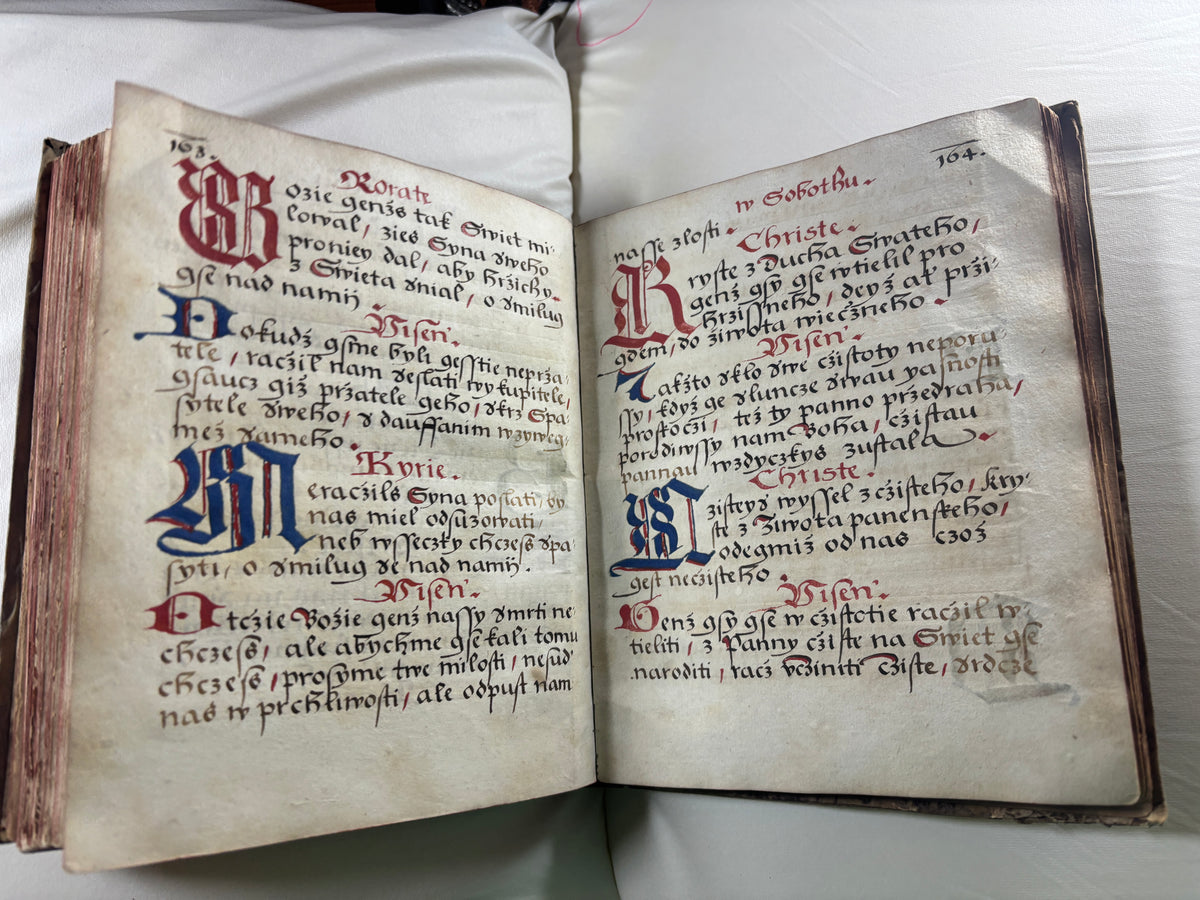 163.
Rorate
Bozie genžs tak Swiet mi-
lowal, zies Syna sweho
proniey dal, aby hržichy
z Swieta sňial, o smilug
gse nad namij
Pisen.
Dokudž gsme byli gesstie neprža-
tele, raczil nam seslati wykupitele,
gsaucz giž pržatele geho, skrz Spa-
sytele sweho, s dauffanim wzyweg-
mež sameho.
Kyrie.
Neraczils Syna poslati, by
nas miel odsuzowati,
neb wsseczky chczess spa-
syti, o smilug se nad namij.
Pisen.
Otczie Božie genž nassy smrti ne-
chczess, ale abychme gse kali tomu
chczess, prosyme twe milosti, nesuď
nas w prchžliwosti, ale odpust nam
164.
w Sobothu.
nasse zlosti.
Christe.
Kryste z Ducha Swateho,
genž gsy gse wtielil pro
hrzissneho, deyž ať prži-
gdem, do žiwota wieczneho.
Pisen.
Jakžto sklo swe czistoty neporu-
ssy, když ge sluncze swau yasnosti
proskoczi, též ty panno przedraha,
porodiwssy nam Boha, czistau
pannau wzdyczkys zustala.
Christe.
Czisteys wyssel z czisteho, kry-
ste z Žiwota panenskeho,
odegmiž od nas czož
gest neczisteho.
Pisen.
Genž gsy gse w czistotie raczil w-
tieliti, z Panny cziste na Swiet gse
naroditi, racž vcziniti Cziste, srdcze